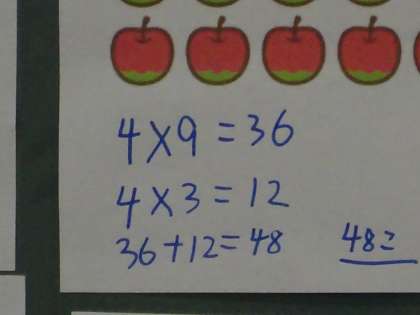 4×9=36
4×3=12
36+12=48 48こ